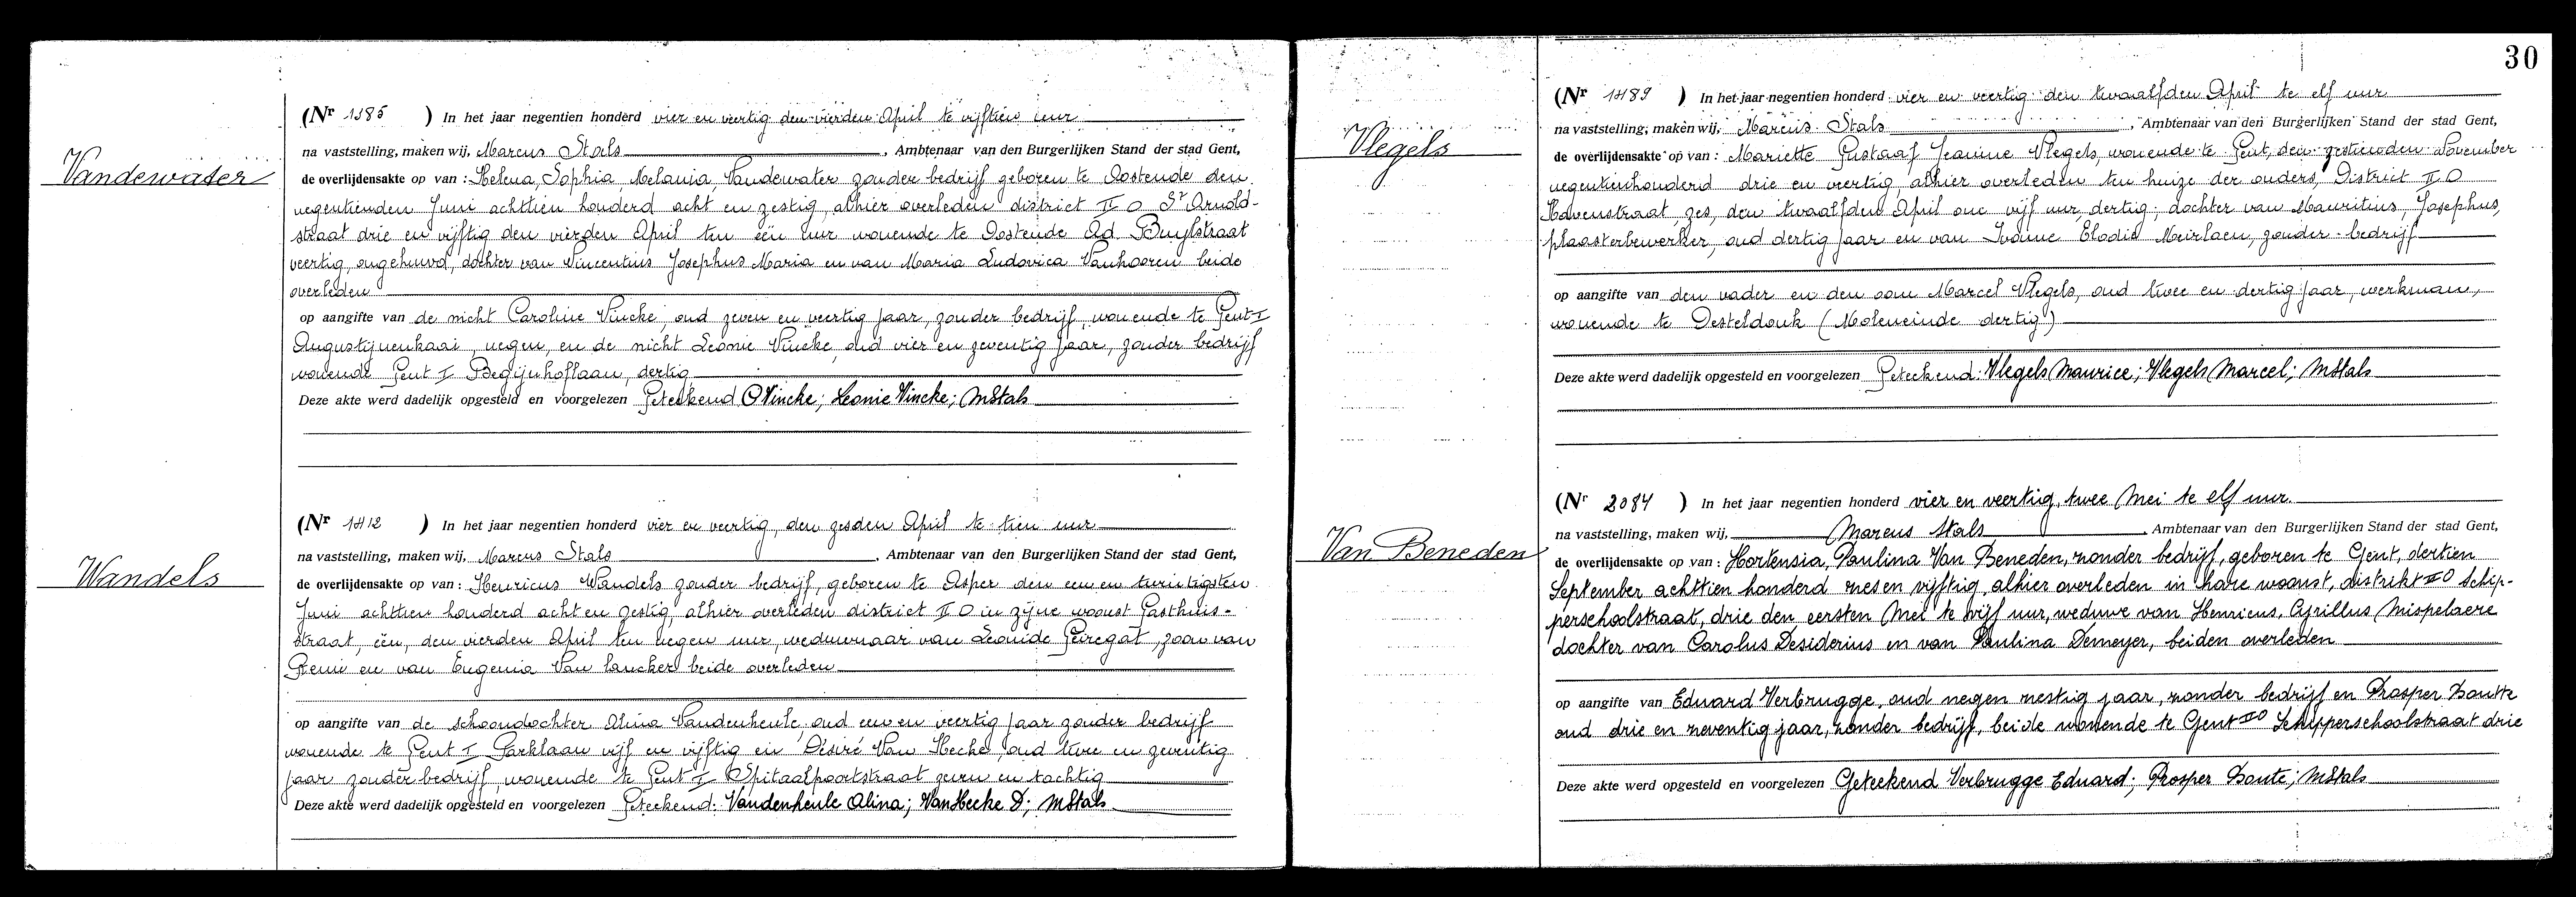 Vandewater
(Nr 1385 ) In het jaar negentien honderd vier en veertig den vierden April te vijftien uur
na vaststelling, maken wij, Marcus Stals, Ambtenaar van den Burgerlijken Stand der stad Gent,
de overlijdensakte op van : Helena, Sophia, Melania, Vandewater zonder bedrijf geboren te Oostende den
negentienden Juni achttien honderd acht en zestig, alhier overleden district II O St Arnold-
straat drie en vijftig den vierden April ten één uur wonende te Oostende Ad. Buylstraat
veertig, ongehuwd, dochter van Vincentius Josephus Maria en van Maria Ludovica Vanhooren beide
overleden
op aangifte van de nicht Caroline Vincke, oud zeven en veertig jaar, zonder bedrijf, wonende te Gent I
Augustijnenkaai, negen, en de nicht Leonie Vincke, oud vier en zeventig jaar, zonder bedrijf
wonende Gent I Begijnhoflaan, dertig
Deze akte werd dadelijk opgesteld en voorgelezen Geteekend C Vincke; Leonie Vincke; MStals
Wandels
(Nr 1412 ) In het jaar negentien honderd vier en veertig, den zesden April te tien uur
na vaststelling, maken wij, Marcus Stals, Ambtenaar van den Burgerlijken Stand der stad Gent,
de overlijdensakte op van : Henricus Wandels zonder bedrijf, geboren te Asper den een en twintigsten
Juni achttien honderd acht en zestig, alhier overleden district II O in zijne woonst Gasthuis-
straat, één, den vierden April ten negen uur, weduwnaar van Leonide Geiregat, zoon van
Remi en van Eugenia Van Laucker beide overleden
op aangifte van de schoondochter Alina Vandenheule, oud een en veertig jaar zonder bedrijf
wonende te Gent I Parklaan vijf en vijftig en Désiré Van Hecke, oud twee en zeventig
jaar zonder bedrijf, wonende te Gent I Spitaalpoortstraat zeven en tachtig
Deze akte werd dadelijk opgesteld en voorgelezen Geteekend: Vandenheule Alina; VanHecke D; MStals
30
Vlegels
(Nr 1489 ) In het jaar negentien honderd vier en veertig den twaalfden April te elf uur
na vaststelling, maken wij, Marcus Stals, Ambtenaar van den Burgerlijken Stand der stad Gent,
de overlijdensakte op van : Mariette Gustaaf Jeanine Vlegels, wonende te Gent, den zestienden November
negentienhonderd drie en veertig, alhier overleden ten huize der ouders, District II O
Havenstraat, zes, den twaalfden April one vijf uur, dertig, dochter van Mauritius, Josephus,
plaasterbewerker, oud dertig jaar en van Ivonne Elodia Meirlaen, zonder bedrijf
op aangifte van den vader en den oom Marcel Vlegels, oud twee en dertig jaar, werkman,
wonende te Desteldonk (Moleneinde dertig)
Deze akte werd dadelijk opgesteld en voorgelezen Geteekend: Vlegels Maurice; Vlegels Marcel; MStals
Van Beneden
(Nr 2084 ) In het jaar negentien honderd vier en veertig, twee Mei te elf uur.
na vaststelling, maken wij, Marcus Stals Ambtenaar van den Burgerlijken Stand der stad Gent,
de overlijdensakte op van : Hortensia, Paulina Van Beneden, zonder bedrijf, geboren te Gent, dertien
September achttien honderd zes en vijftig, alhier overleden in hare woonst, distrikt II O Schip-
perschoolstraat, drie den eersten Mei te vijf uur, weduwe van Henricus, Cyrillus Mispelaere
dochter van Carolus Desiderius en van Paulina Demeyer, beiden overleden
op aangifte van Eduard Verbrugge, oud negen zestig jaar, zonder bedrijf en Prosper Zoutte
oud drie en zeventig jaar, zonder bedrijf, beide wonende te Gent II O Schipperschoolstraat drie
Deze akte werd opgesteld en voorgelezen Geteekend Verbrugge Eduard; Prosper Zoute; MStals